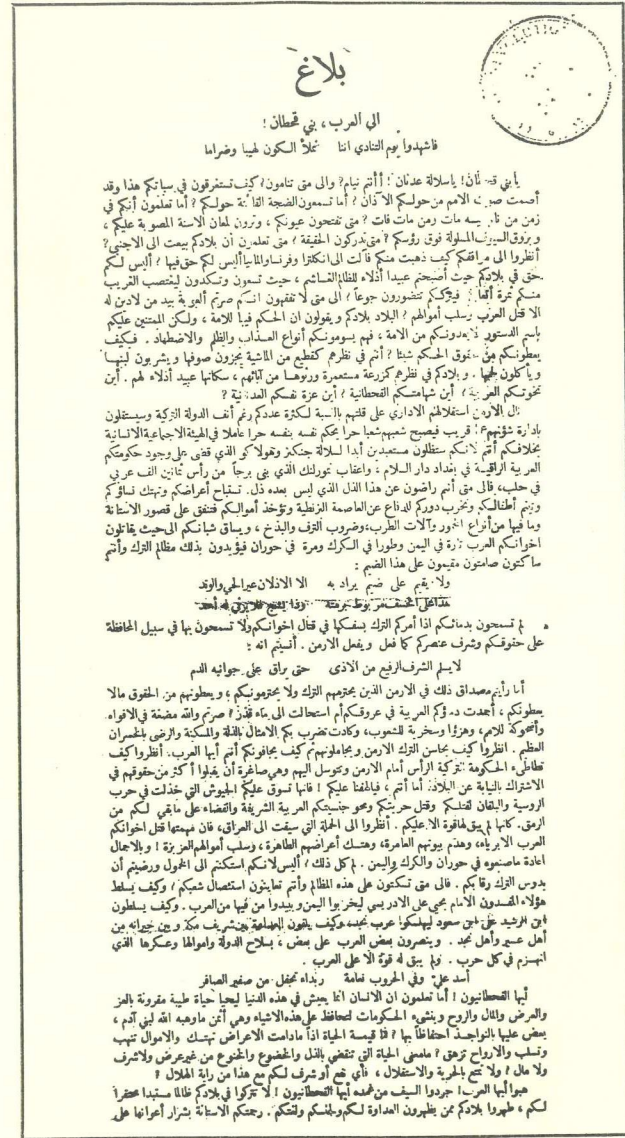 بلاغ
الى العرب ، بني قحطان !
فاشهدوا يوم التنادي اننا نملأ الكون لهيبا وضراما
يا بني قحطان ! ياسلالة عدنان ! أأنتم نيام ? والى متى تنامون ? كيف تستغرقون في سباتكم هذا وقد
أصمت صوت الامم من حولكم الآذان ? أما تسمعون الضجة القائمة حولكم ? أما تعلمون أنكم في
زمن من نام فيه مات ومن مات فات ? متى تفتحون عيونكم ، وترون لمعان الاسنة المصوبة عليكم ،
وبروق السيوف المسلولة فوق رؤسكم ? متى تدركون الحقيفة ? متى تعلمون أن بلادكم بيعت الى الاجنبي ?
أنظروا الى مرافقكم كيف ذهبت منكم فآلت الى انكلترا وفرنسا والمانيا أليس لكم حق فيها ? أليس لكم
حق في بلادكم حيث أصبحتم عبيدا أذلاء للظالم الغاشم ، حيث تسعون وتكدون ليغتصب الغريب
منكم ثمرة أتعابكم فيترككم تتضورون جوعاً ? الى متى لا تفقهون انكم صرتم ألعوبة بيد من لادين له
الا قتل العرب وسلب أموالهم ? البلاد بلادكم ويقولون ان الحكم فيها للامة ، ولكن الممتنين عليكم
باسم الدستور لا يعدونكم من الامة ، فهم يسومونكم أنواع العذاب والظلم والاضطهاد . فكيف
يعطونكم من حقوق الحكم شيئا ? أنتم في نظرهم كقطيع من الماشية يجزون صوفها ويشربون لبنها
ويأكلون لحمها . وبلادكم في نظرهم كزرعة مستعمرة ورثوها من آبائهم ، سكانها عبيد أذلاء لهم . أين
نخوتكم العربية ? أين شهامتكم القحطانية ? أين عزة نفسكم العدنانية ?
نال الارمن استقلالهم الاداري على قلتهم بالنسبة لكثرة عددكم رغم أنف الدولة التركية وسيستقلون
بادارة شؤنهم عن قريب فيصبح شعبهم شعبا حرا يحكم نفسه بنفسه حرا عاملا في الهيئة الاجتماعية الانسانية
بخلافكم أنتم لانكم ستظلون مستعبدين أبدا لسلالة جنكيز وهولاكو الذي قضى على وجود حكومتكم
العربية الراقية في بغداد دار السلام ، واعقاب تيمورلنك الذي بنى برجاً من رأس ثمانين الف عربي
في حلب، فالى متى أنتم راضون عن هذا الذل الذي ليس بعده ذل. تستباح أعراضكم وتهتك نساؤكم
وتيتم أطفالكم وتخرب دوركم للدفاع عن العاصمة البزنطية وتؤخذ أموالكم فتنفق على قصور الاستانة
وما فيها من أنواع الخمور وآلات الطرب، وضروب الترف والبذخ ، ويساق شبانكم الى حيث يقاتلون
اخوانكم العرب تارة في اليمن وطورا في الكرك ومرة في حوران فيؤيدون بذلك مظالم الترك وأنتم
ساكتون صامتون مقيمون على هذا الضيم :
ولا يقيم على ضيم يراد به الا الاذلان عير الحي والوتد
هذا على الخسف مربوط برمته وذا يشج فلا يرثي له أحد
لم تسمحون بدمائكم اذا أمركم الترك بسفكها في قتال اخوانكم ولا تسمحون بها في سبيل المحافظة
على حقوقكم وشرف عنصركم كما فعل ويفعل الارمن . أنسيتم انه :
لا يسلم الشرف الرفيع من الاذى حتى يراق على جوانبه الدم
أما رأيتم مصداق ذلك في الارمن الذين يحترمهم الترك ولا يحترمونكم ، ويعطونهم من الحقوق مالا
يعطونكم ، أجمدت دماؤكم العربية في عروقكم أم استحالت الى ماء قذر ? صرتم والله مضغة في الافواه
وأضحوكة للامم، وهزؤا وسخرية للشعوب، وكادت تضرب بكم الامثال بالذلة والمسكنة والرضى بالخسران
العظيم . انظروا كيف يحاسن الترك الارمن ويجاملونهم ثم كيف يجافونكم أنتم أيها العرب. أنظروا كيف
تطأطىء الحكومة التركية الرأس أمام الارمن وتتوسل اليهم وهي صاغرة أن يقبلوا أكثر من حقوقهم في
الاشتراك بالنيابة عن البلاد. أما أنتم ، فيالهفنا عليكم ! فانها تسوق عليكم الجيوش التي خذلت في حرب
الروسية والبلقان لقتلكم وقتل حريتكم ومحو جنسيتكم العربية الشريفة والقضاء على مابقي لكم من
الرمق. كانها لم يبق لها قوة الا عليكم . أنظروا الى الحملة التي سيقت الى العراق، فان مهمتها قتل اخوانكم
العرب الابرياء، وهدم بيوتهم العامرة، وهتك أعراضهم الطاهرة ، وسلب أموالهم العزيزة ! وبالاجمال
اعادة ماصنعوه في حوران والكرك واليمن . لم كل ذلك ? أليس لانكم استكنتم الى الخمول ورضيتم أن
يدوس الترك رقابكم . فالى متى تسكتون على هذه المظالم وأنتم تعاينون استئصال شعبكم ? وكيف يسلط
هؤلاء المفسدون الامام يحيي على الادريسي ليخربوا اليمن ويبيدوا من فيها من العرب . وكيف يسلطون
ابن الرشيد على ابن سعود ليهلكوا عرب نجد، وكيف يلقون العداوة بين شريف مكة وبين جيرانه من
أهل عسير وأهل نجد . وينصرون بعض العرب على بعض ، بسلاح الدولة واموالها وعسكرها الذي
انهزم في كل حرب . ولم يبق له قوة الا على العرب .
أسد علي وفي الحروب نعامة ربداء تجفل من صفير الصافر
أيها القحطانيون ! أما تعلمون ان الانسان انما يعيش في هذه الدنيا ليحيا حياة طيبة مقرونة بالعز
والعرض والمال والروح وينشىء الحكومات لتحافظ على هذه الاشياء وهي أثمن ماوهبه الله لبني آدم ،
يعض عليها بالنواجذ احتفاظاً بها ? فما قيمة الحياة اذاً مادامت الاعراض تهتك والاموال تنهب
وتسلب والارواح تزهق ? مامعنى الحياة التي تنقضي بالذل والخضوع والخنوع من غير عرض ولا شرف
ولا مال ? ولا تمتع بالحرية والاستقلال ، فأي نفع أو شرف لكم مع هذا من راية الهلال ?
هبوا أيها العرب! جردوا السيف من غمده أيها القحطانيون ! لا تتركوا في بلادكم ظالما مستبدا محتقرا
لكم ، طهروا بلادكم ممن يظهرون العداوة لكم ولجنسكم ولغتكم. رجمتكم الاستانة بشرار أعوانها على